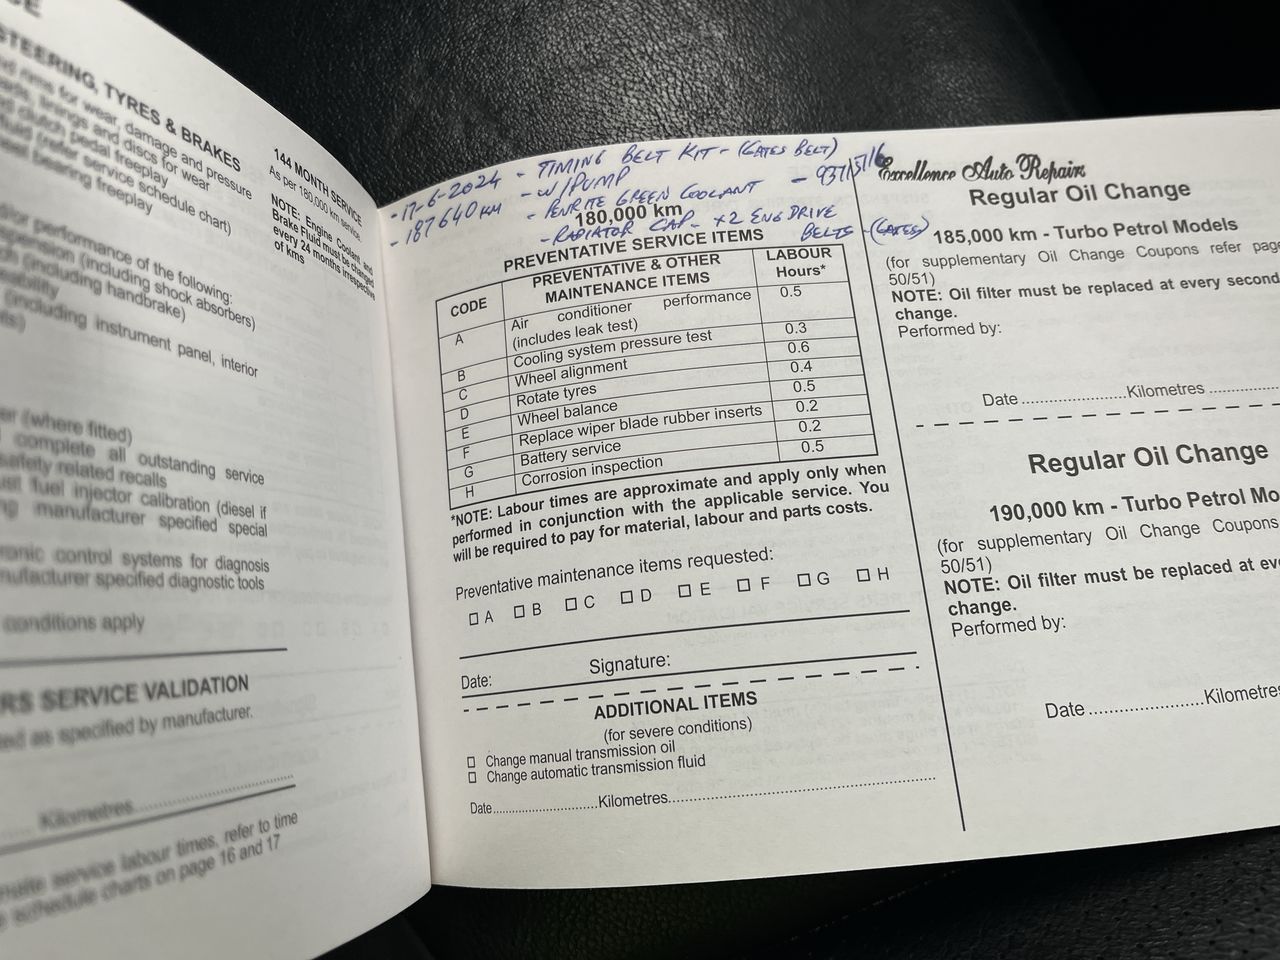 STEERING, TYRES & BRAKES
and rims for wear, damage and pressure
linings and discs for wear
clutch pedal freeplay
fluid (refer service schedule chart)
wheel bearing freeplay
performance of the following:
(including shock absorbers)
(including handbrake)
(including instrument panel, interior
(where fitted)
complete all outstanding service
safety related recalls
fuel injector calibration (diesel if
manufacturer specified special
control systems for diagnosis
manufacturer specified diagnostic tools
conditions apply
SERVICE VALIDATION
as specified by manufacturer.
Kilometres
service labour times, refer to time
schedule charts on page 16 and 17
144 MONTH SERVICE
As per 180,000 km service.
NOTE: Engine Coolant and
Brake Fluid must be changed
every 24 months irrespective
of kms
- 17-6-2024 - TIMING BELT KIT - (GATES BELT)
- 187640KM - W/PUMP
- PENRITE GREEN COOLANT
180,000 km
- RADIATOR CAP - +2 ENG DRIVE
BELTS - (GATES)
PREVENTATIVE SERVICE ITEMS
CODE PREVENTATIVE & OTHER MAINTENANCE ITEMS LABOUR Hours*
A Air conditioner performance (includes leak test) 0.5
B Cooling system pressure test 0.3
C Wheel alignment 0.6
D Rotate tyres 0.4
E Wheel balance 0.5
F Replace wiper blade rubber inserts 0.2
G Battery service 0.2
H Corrosion inspection 0.5
*NOTE: Labour times are approximate and apply only when
performed in conjunction with the applicable service. You
will be required to pay for material, labour and parts costs.
Preventative maintenance items requested:
A B C D E F G H
Date: Signature:
ADDITIONAL ITEMS
(for severe conditions)
Change manual transmission oil
Change automatic transmission fluid
Date..............................Kilometres..............................
Excellence Auto Repairs
Regular Oil Change
185,000 km - Turbo Petrol Models
(for supplementary Oil Change Coupons refer page
50/51)
NOTE: Oil filter must be replaced at every second
change.
Performed by:
Date ........................Kilometres ................
Regular Oil Change
190,000 km - Turbo Petrol Mo
(for supplementary Oil Change Coupons
50/51)
NOTE: Oil filter must be replaced at eve
change.
Performed by:
Date ........................Kilometres